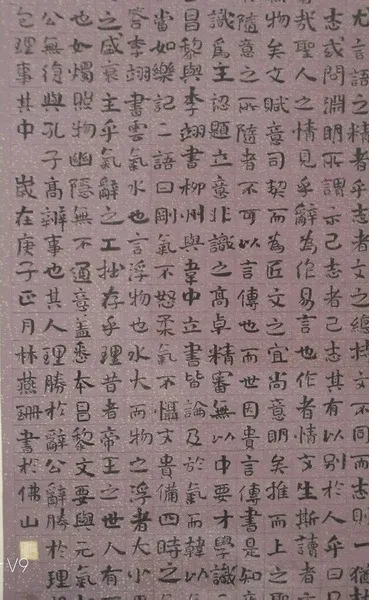 尤言語之精者乎志者文之總持文不同而志則一猶鼓
志或問淵明所謂示己志者己志其有以別於人乎曰只
哉聖人之情見乎辭為作易言也作者情文生斯讀者文
物矣文賦意司契而為匠文之宜尚意明矣推而上之
隨意之所隨者不可以言傳也而世因貴言傳書是知意
識為主認題立意非識之高卓精審無以中要才學識
昌黎與李翊書柳州與韋中立書皆論及於氣而韓以
當如樂記二語曰剛氣不怒柔氣不懾文貴備四時之
答李翊書雲氣水也言浮物也水大而物之浮者大小
之盛衰主乎氣辭之工拙存乎理昔者帝王之世人有
也如燭照物幽隱無不通意蓋悉本昌黎文要與元氣
公無復與孔子高辨事也其人理勝於辭公辭勝於理
包理事其中 歲在庚子正月林燕珊書於佛山
V9